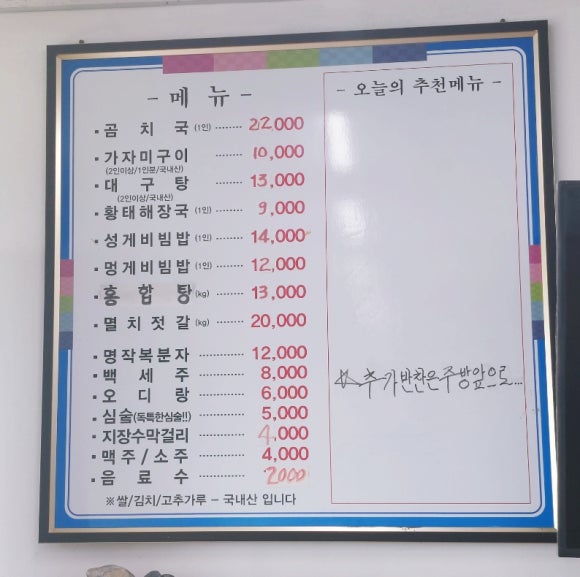 - 메 뉴 -
▪ 곰 치 국 (1인) ········ 22,000
▪ 가자미구이 ········ 10,000
(2인이상/1인분/국내산)
▪ 대 구 탕 ········ 13,000
(2인이상/국내산)
▪ 황태해장국 (1인) ········ 9,000
▪ 성게비빔밥 (1인) ········ 14,000
▪ 멍게비빔밥 (1인) ········ 12,000
▪ 홍 합 탕 (kg) ········ 13,000
▪ 멸치젓갈 (kg) ········ 20,000
▪ 명작복분자 ············ 12,000
▪ 백 세 주 ············ 8,000
▪ 오 디 랑 ············ 6,000
▪ 심술(독특한심술!!) ············ 5,000
▪ 지장수막걸리 ············ 4,000
▪ 맥주/소주 ············ 4,000
▪ 음 료 수 ············ 2000
※쌀/김치/고추가루 - 국내산 입니다
- 오늘의 추천메뉴 -
☆ 추가반찬은주방앞으로...